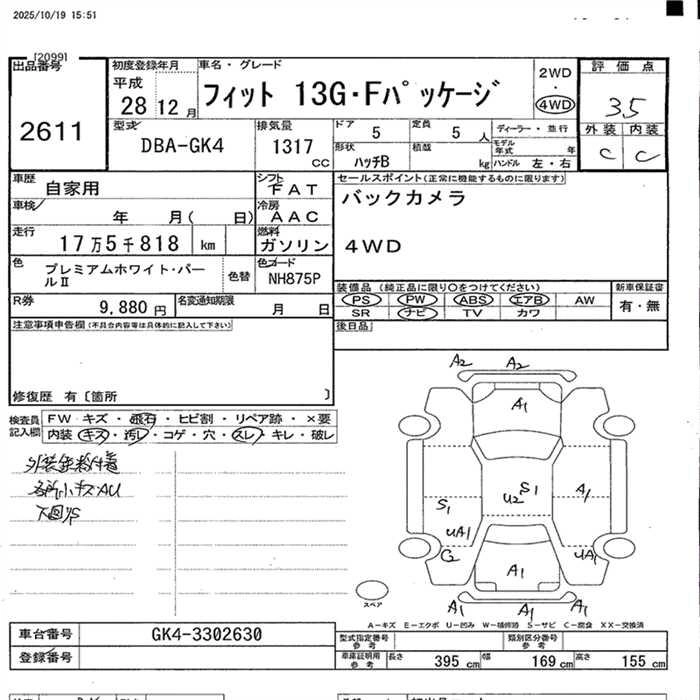 2025/10/19 15:51
[2099]
出品番号
2611
初度登録年月
平成
28 12月
車名・グレード
フィット 13G・Fパッケージ
2WD
・
4WD
評価点
3.5
外装 内装
C C
型式
DBA-GK4
排気量
1317 cc
ドア
5
定員
5 人
形状
ハッチB
積載
kg
ディーラー・並行
モデル年式 年
ハンドル 左・右
車歴
自家用
シフト
FAT
車検
年 月( 日)
冷房
AAC
走行
17万5千818 km
燃料
ガソリン
色
プレミアムホワイト・パールⅡ
色替
色コード
NH875P
R券
9,880 円
名変通知期限
月 日
セールスポイント(正常に機能するものに限ります)
バックカメラ
4WD
装備品(純正品に限り○をつけてください)
PS PW ABS エアB AW
SR ナビ TV カワ
新車保証書
有・無
後日品
注意事項申告欄(不具合内容等は具体的に記入して下さい)
修復歴 有〔箇所 〕
検査員記入欄
FW キズ・飛石・ヒビ割・リペア跡・×要
内装 キズ・汚レ・コゲ・穴・スレ・キレ・破レ
各所小キズAU
下回りS
A2 A2
A1
S1
U2
A1
S1
UA1
G2
UA1
A1
A1 A1 A1
スペア
A-キズ E-エクボ U-凹み W-補修跡 S-サビ C-腐食 XX-交換済
車台番号
GK4-3302630
登録番号
型式指定番号
参考
類別区分番号
参考
車庫証明用
参考
長さ 395 cm 幅 169 cm 高さ 155 cm